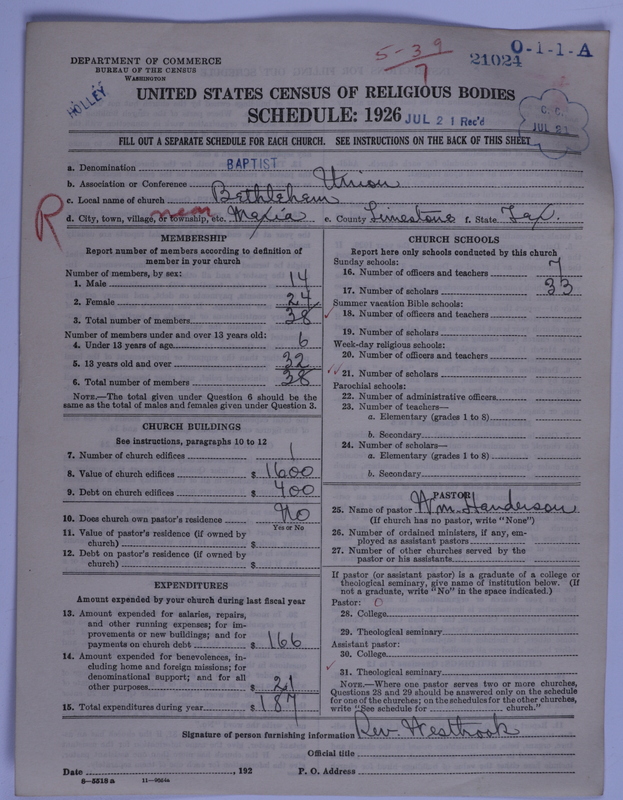 DEPARTMENT OF COMMERCE
BUREAU OF THE CENSUS
WASHINGTON
5-39
7
21024
0-1-1-A
HOLLEY
UNITED STATES CENSUS OF RELIGIOUS BODIES
SCHEDULE: 1926
JUL 21 Rec'd
C. C.
JUL 21
FILL OUT A SEPARATE SCHEDULE FOR EACH CHURCH. SEE INSTRUCTIONS ON THE BACK OF THIS SHEET
a. Denomination BAPTIST
b. Association or Conference Union
c. Local name of church Bethleham
R
d. City, town, village, or township, etc. near Mexia e. County Limestone f. State Tex.
MEMBERSHIP
Report number of members according to definition of
member in your church
Number of members, by sex:
1. Male 14
2. Female 24
3. Total number of members 38
Number of members under and over 13 years old:
4. Under 13 years of age 6
5. 13 years old and over 32
6. Total number of members 38
NOTE.—The total given under Question 6 should be the
same as the total of males and females given under Question 3.
CHURCH BUILDINGS
See instructions, paragraphs 10 to 12
7. Number of church edifices 1
8. Value of church edifices $ 1600
9. Debt on church edifices $ 400
10. Does church own pastor's residence No
Yes or No
11. Value of pastor's residence (if owned by
church) $
12. Debt on pastor's residence (if owned by
church) $
EXPENDITURES
Amount expended by your church during last fiscal year
13. Amount expended for salaries, repairs,
and other running expenses; for im-
provements or new buildings; and for
payments on church debt $ 166
14. Amount expended for benevolences, in-
cluding home and foreign missions; for
denominational support; and for all
other purposes $ 21
15. Total expenditures during year $ 187
CHURCH SCHOOLS
Report here only schools conducted by this church
Sunday schools:
16. Number of officers and teachers 7
17. Number of scholars 33
Summer vacation Bible schools:
18. Number of officers and teachers
19. Number of scholars
Week-day religious schools:
20. Number of officers and teachers
21. Number of scholars
Parochial schools:
22. Number of administrative officers
23. Number of teachers—
a. Elementary (grades 1 to 8)
b. Secondary
24. Number of scholars—
a. Elementary (grades 1 to 8)
b. Secondary
PASTOR
25. Name of pastor Wm. Handerson
(If church has no pastor, write "None")
26. Number of ordained ministers, if any, em-
ployed as assistant pastors
27. Number of other churches served by the
pastor or his assistants
If pastor (or assistant pastor) is a graduate of a college or
theological seminary, give name of institution below. (If
not a graduate, write "No" in the space indicated.)
Pastor: 0
28. College
29. Theological seminary
Assistant pastor:
30. College
31. Theological seminary
NOTE.—Where one pastor serves two or more churches,
Questions 28 and 29 should be answered only on the schedule
for one of the churches; on the schedules for the other churches,
write "See schedule for church."
Signature of person furnishing information Rev. Westbrook
Official title
Date , 192 P. O. Address
8-5518a 11-9554a